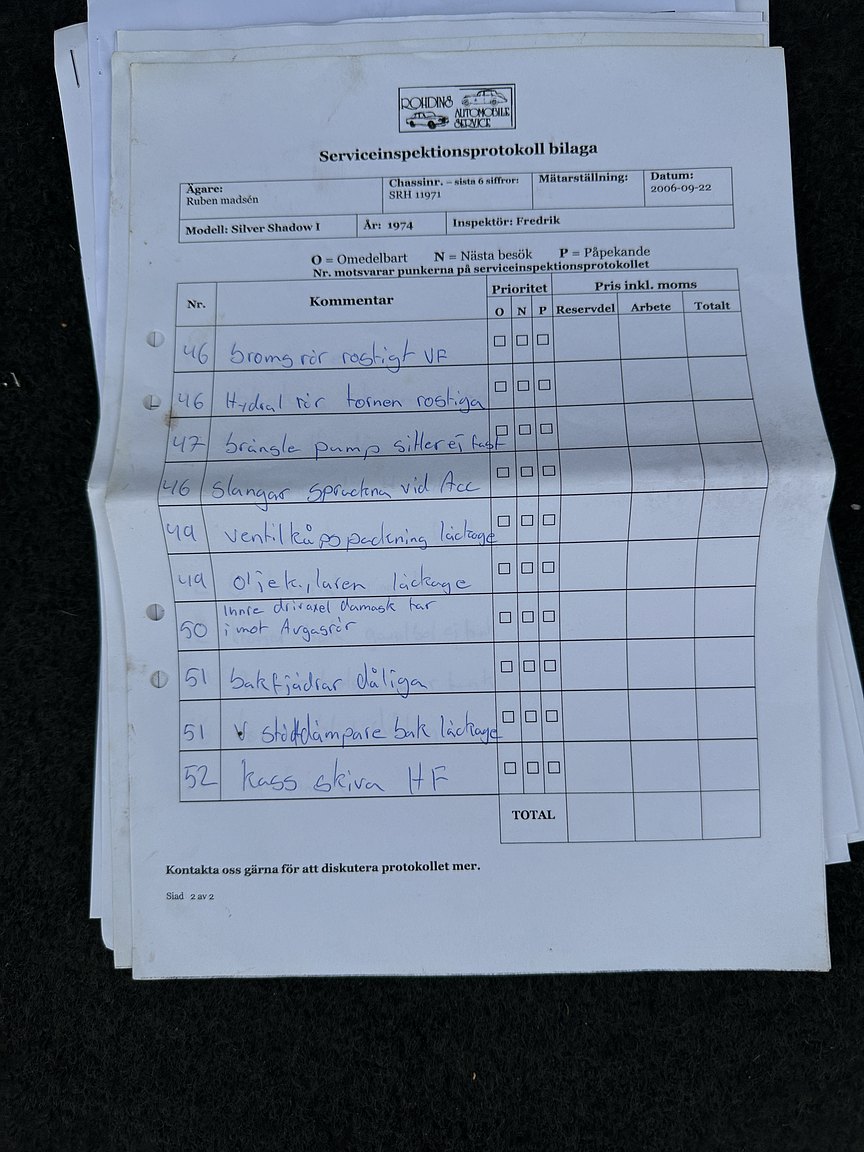 ROHDINS
AUTOMOBILE
SERVICE
Serviceinspektionsprotokoll bilaga
Ägare:
Ruben madsén
Chassinr. – sista 6 siffror:
SRH 11971
Mätarställning:
Datum:
2006-09-22
Modell: Silver Shadow I
År: 1974
Inspektör: Fredrik
O = Omedelbart N = Nästa besök P = Påpekande
Nr. motsvarar punkerna på serviceinspektionsprotokollet
Nr. Kommentar Prioritet Pris inkl. moms
O N P Reservdel Arbete Totalt
46 bromsrör rostigt VF
46 Hydral rör tornen rostiga
47 bränsle pump sitter ej fast
46 slangar spruckna vid Acc
49 ventilkåpspackning läckage
49 oljekylaren läckage
50 Innre drivaxel damask tar
i mot Avgasrör
51 bakfjädrar dåliga
51 V stötdämpare bak läckage
52 kass skiva HF
TOTAL
Kontakta oss gärna för att diskutera protokollet mer.
Siad 2 av 2